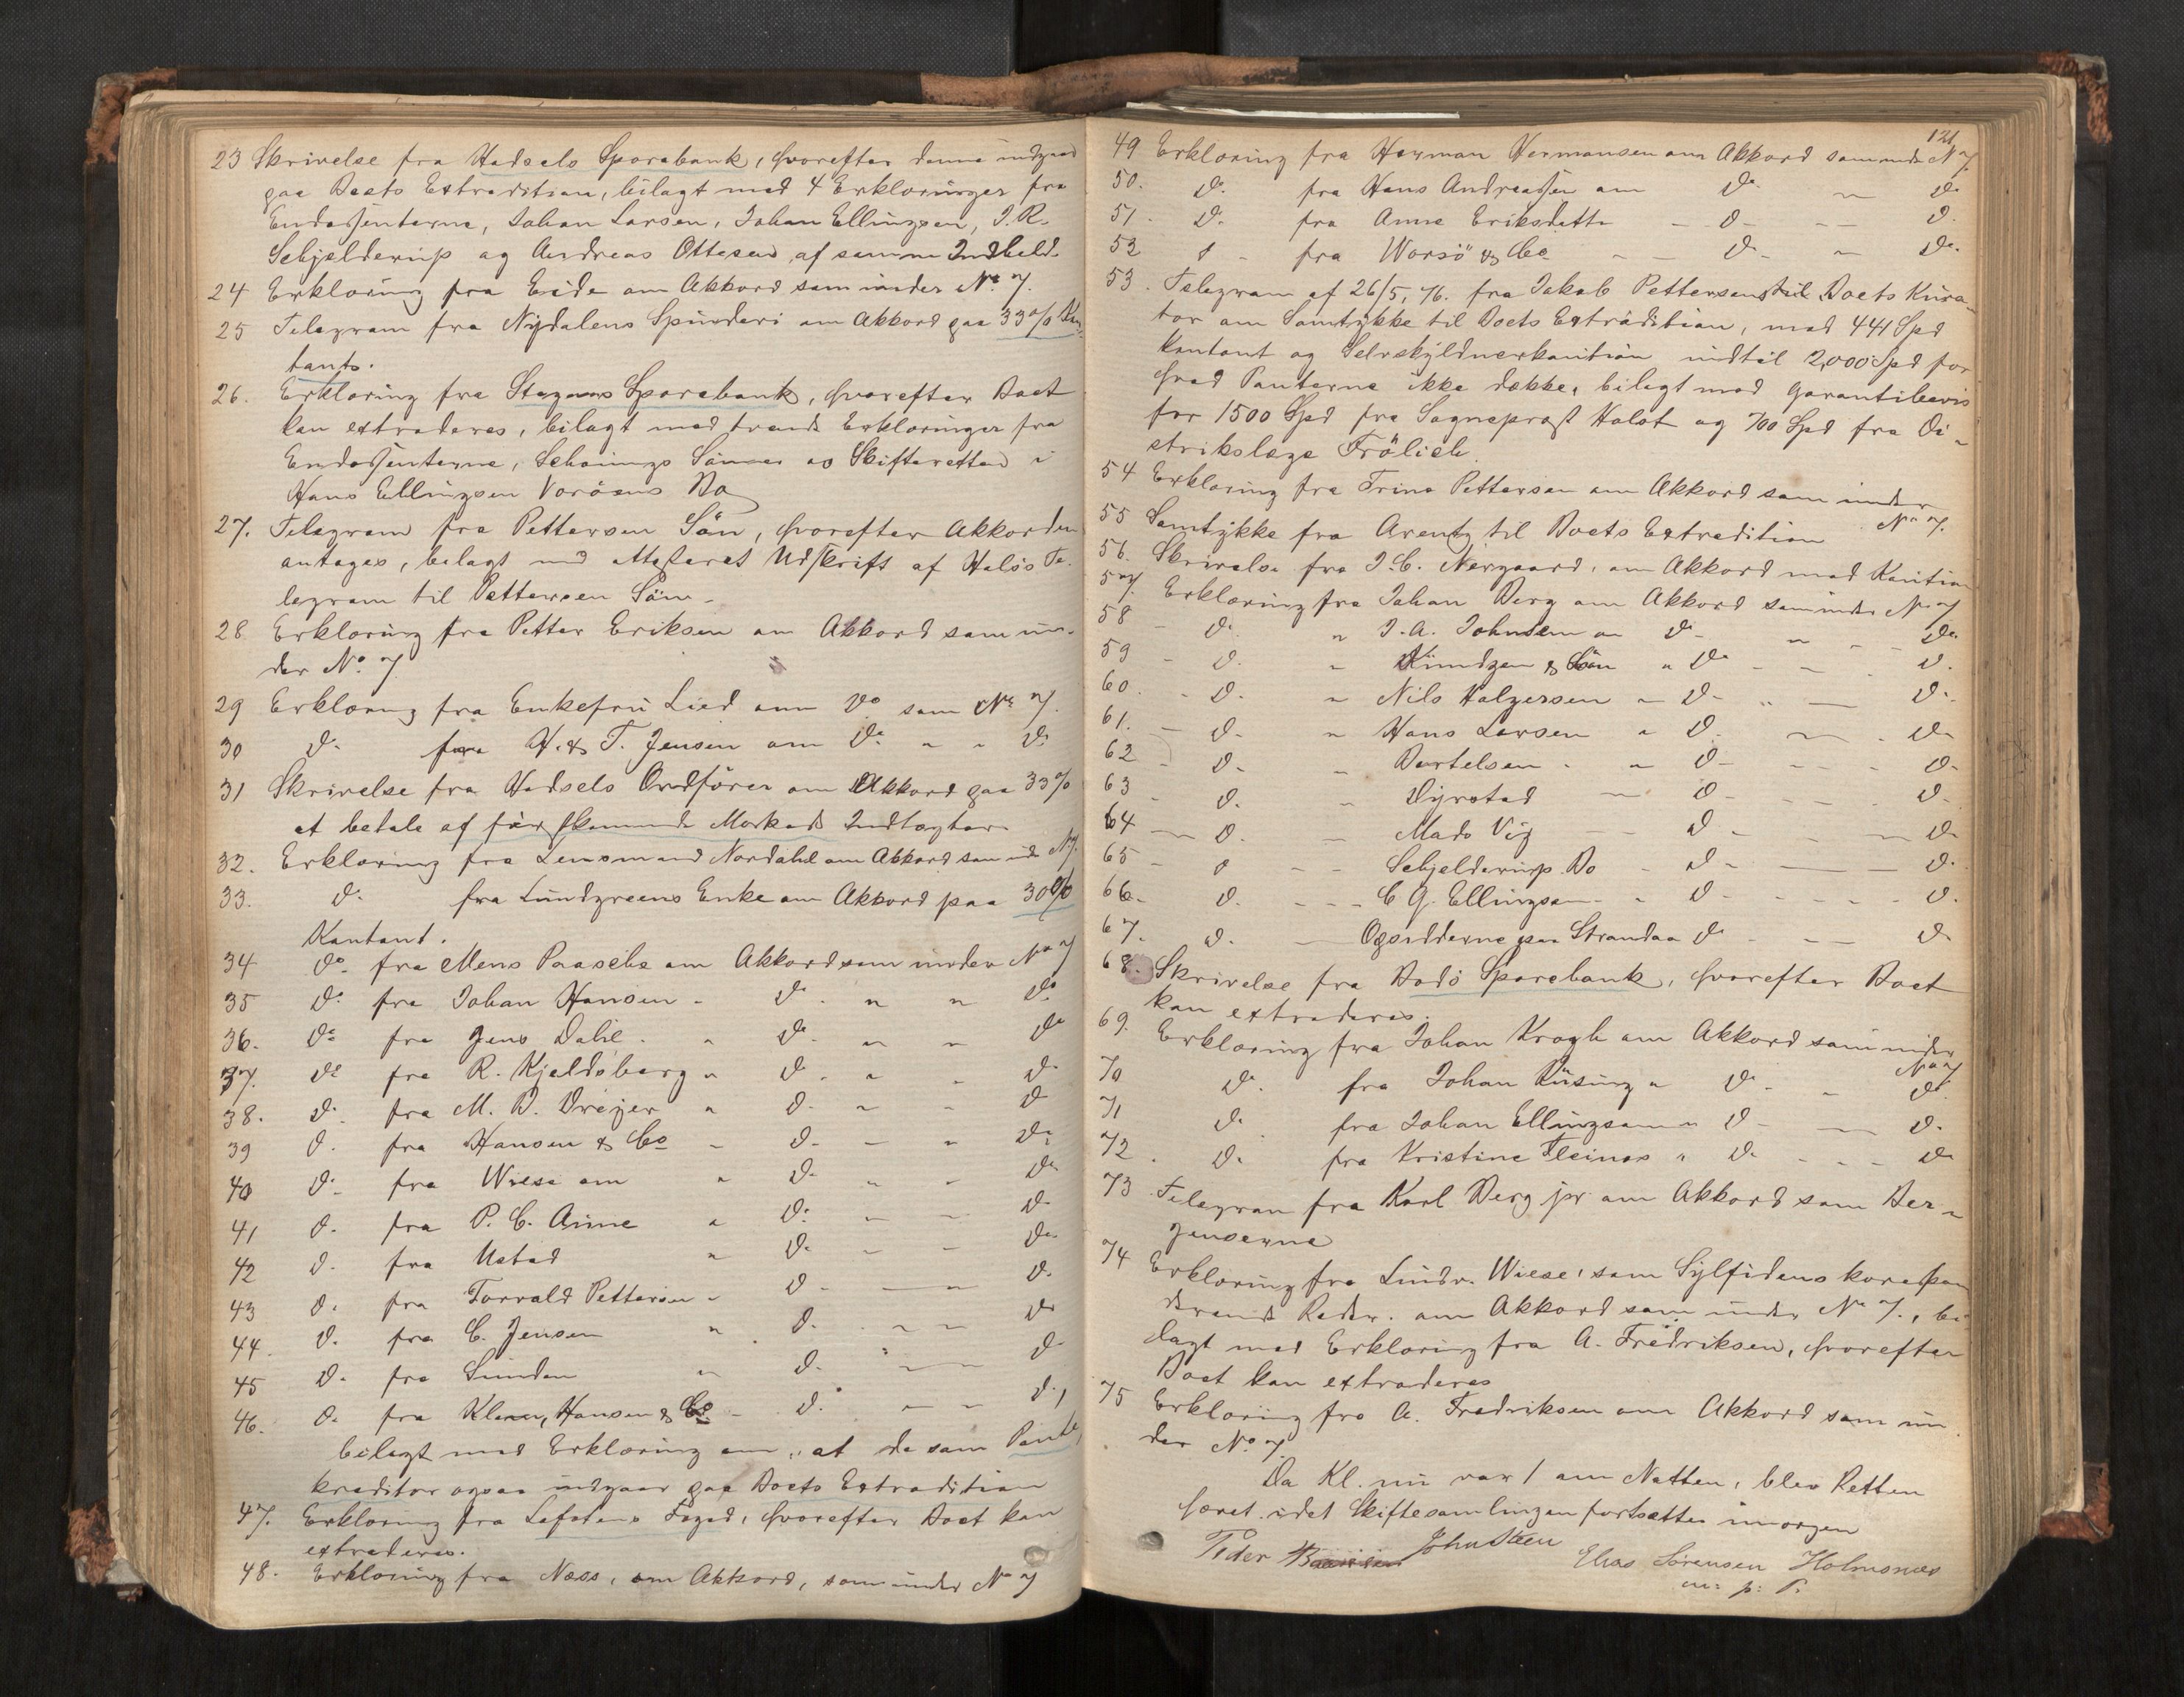 23 Skrivelse fra Hadsels Sparebank, hvorefter denne indgaar
paa Boets Extradition, bilagt med 4 Erklæringer fra
Endossenterne, Johan Larsen, Johan Ellingsen, J. R.
Schjelderup og Andreas Ottesen af samme Indhold.
24 Erklæring fra Eide om Akkord som under No 7.
25 Telegram fra Nydalens Spinderi om Akkord paa 33% Kon-
tant.
26. Erklæring fra Stegens Sparebank, hvorefter Boet
kan extraderes, bilagt med trende Erklæringer fra
Endossenterne, Schønings Sønner og Skifteretten i
Hans Ellingsen Vorøens Bo
27. Telegram fra Pettersen Søn, hvorefter Akkorden
antages, bilagt med attesteret Udskrift af Halős Te-
legram til Pettersen Søn.
28 Erklæring fra Petter Eriksen om Akkord som un-
der No. 7
29 Erklæring fra Enkefru Lied om Do som No 7.
30 Do fra H. & T. Jensen om Do " " Do
31 Skrivelse fra Hadsels Ordfører om Akkord paa 33%
at betale af førstkommende Markeds Indtægter.
32. Erklæring fra Lensmand Nordahl om Akkord som under No 7.
33. Do fra Lundgreens Enke om Akkord paa 30%
Kontant.
34 Do fra Mens Paasche om Akkord som under No 7
35 Do fra Johan Hansen - Do " " Do
36. Do fra Jens Dahl - " Do " " Do
37. Do fra R. Kjeldsberg " Do " " Do
38. Do fra M. D. Dreyer " Do " " Do
39 Do fra Hansen & Co - Do - " Do
40 Do fra Wiese om " Do " " Do
41 Do fra P. C. Anine " Do - - Do
42 Do fra Ustad " Do - - Do
43 Do fra Torvald Pettersen - Do - " Do
44. Do fra C. Jensen " Do " " Do
45 Do fra Lunden " Do " " Do
46. Do fra Klæm, Hansen & Co - Do - - Do,
bilagt med Erklæring om, at de som Pant-
kreditor ogsaa indgaar paa Boets Extradition
47. Erklæring fra Lofotens Foged, hvorefter Boet kan
extraderes.
48. Erklæring fra Næss, om Akkord, som under No 7
121
49 Erklæring fra Herman Hermansen om Akkord som under No 7.
50. Do fra Hans Andreassen om Do " Do
51. Do fra Anne Eriksdatter - Do - - Do
52 Do fra Worsö & Co - - Do - " Do
53. Telegram af 26/5, 76. fra Jakob Pettersens til Boets Kura-
tor om Samtykke til Boets Extradition, mod 441 Spd
kontant og Selvskyldnerkaution indtil 2,000 Spd for
hvad Panterne ikke dække, bilagt med Garantibevis
for 1500 Spd fra Sogneprest Halst og 700 Spd fra Di-
strikslæge Frölich.
54 Erklæring fra Trine Pettersen om Akkord som under
No 7.
55 Samtykke fra Arentz til Boets Extradition
56. Skrivelse fra J. C. Nergaard, om Akkord med Kaution
57. Erklæring fra Johan Berg om Akkord som under No 7
58 - Do " J. A. Johnsen om Do " - - Do
59 - Do " Kundzen & Søn " Do - - Do
60. - Do " Nils Holgersen - Do " - Do
61. - Do " Hans Larsen " Do - - Do
62 - Do " Bertelsen - " Do - - - Do
63 - Do " Dyrstad - Do - - - Do
64 - Do - Mads Vig - Do - - - Do
65 - Do - - Schjelderup Bo - Do - - - Do
66. Do - - - C G. Ellingsen - " Do - - - - Do
67. Do - Opsidderne paa Strandaa Do - - Do
68. Skrivelse fra Bodö Sparebank, hvorefter Boet
kan extraderes.
69. Erklæring fra Johan Krogh om Akkord som under
No 7
70 Do fra Johan Rüsing " Do - " Do
71 Do fra Johan Ellingsen " Do - - Do
72. Do fra Kristine Fleines " Do - - - Do
73 Telegram fra Karl Berg jr om Akkord som Ber-
genserne
74 Erklæring fra Lindr. Wiese, som Sylfidens korespon
derende Reder. om Akkord som under No 7., bi-
lagt med Erklæring fra A. Fredriksen, hvorefter
Boet kan extraderes
75 Erklæring fra A. Fredriksen om Akkord som un
der No 7
Da Kl. nu var 1 om Natten, blev Retten
hævet idet Skiftesamlingen fortsættes imorgen
Peder John Steen
Elias Sørensen Holmsnæs
m: p: P.